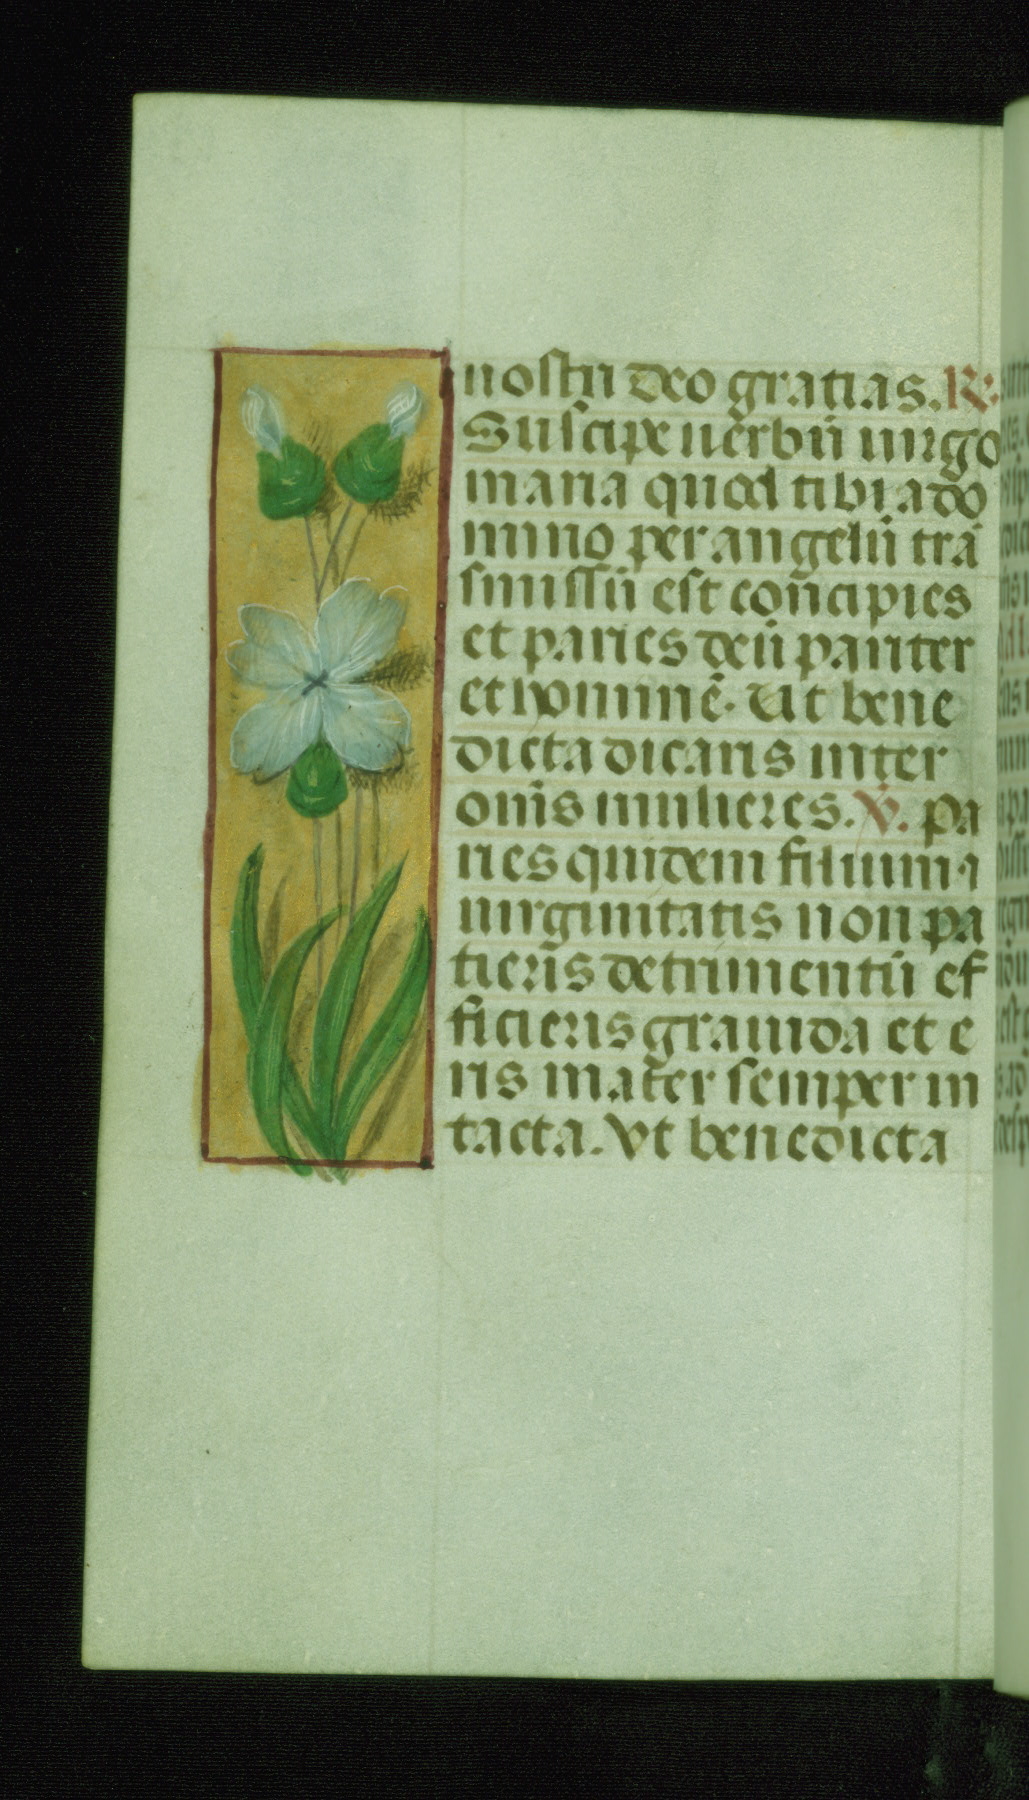 nostri deo gratias. R:
Suscipe uerbū uirgo
maria quod tibi a do
mino per angelū trā
smissū est cōncipies
et paries deū pariter
et hominē. Ut bene
dicta dicaris inter
om̄s mulieres. V. Pa
ries quidem filium ⁊
uirginitatis non pa
tieris detrimentū ef
ficieris grauida et e
ris mater semper in
tacta. Vt benedicta